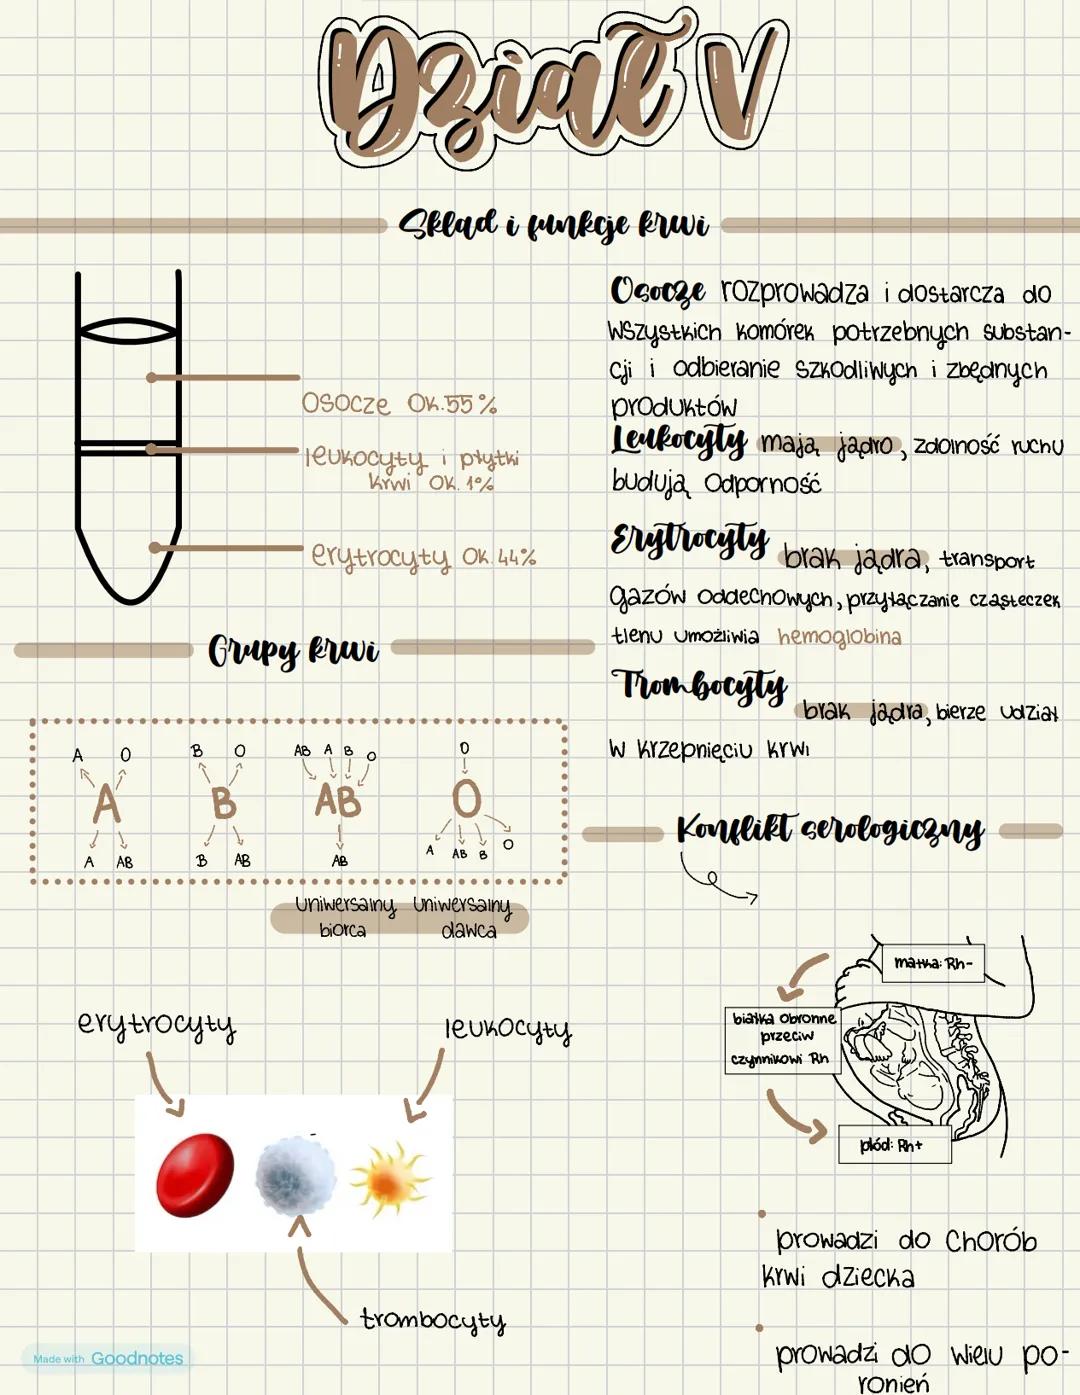 Dział V
Skład i funkcje krwi
osocze ok.55%
leukocyty i płytki
krwi ok.1%
erytrocyty ok.44%
Osocze rozprowadza i dostarcza do
wszystkich komórek potrzebnych substan-
cji i odbieranie szkodliwych i zbędnych
produktów
Leukocyty mają jądro, zdolność ruchu
budują odporność
Erytrocyty brak jądra, transport
gazów oddechowych, przyłączanie cząsteczek
tlenu umożliwia hemoglobina
Trombocyty brak jądra, bierze udział
w krzepnięciu krwi
Grupy krwi
A O B O AB A B O O
A B AB O
A AB B AB AB A AB B O
uniwersalny uniwersalny
biorca dawca
Konflikt serologiczny
matka: Rh-
białka obronne
przeciw
czynnikowi Rh
płód: Rh+
prowadzi do chorób
krwi dziecka
prowadzi do wielu po-
ronień
erytrocyty
leukocyty
trombocyty
Made with Goodnotes